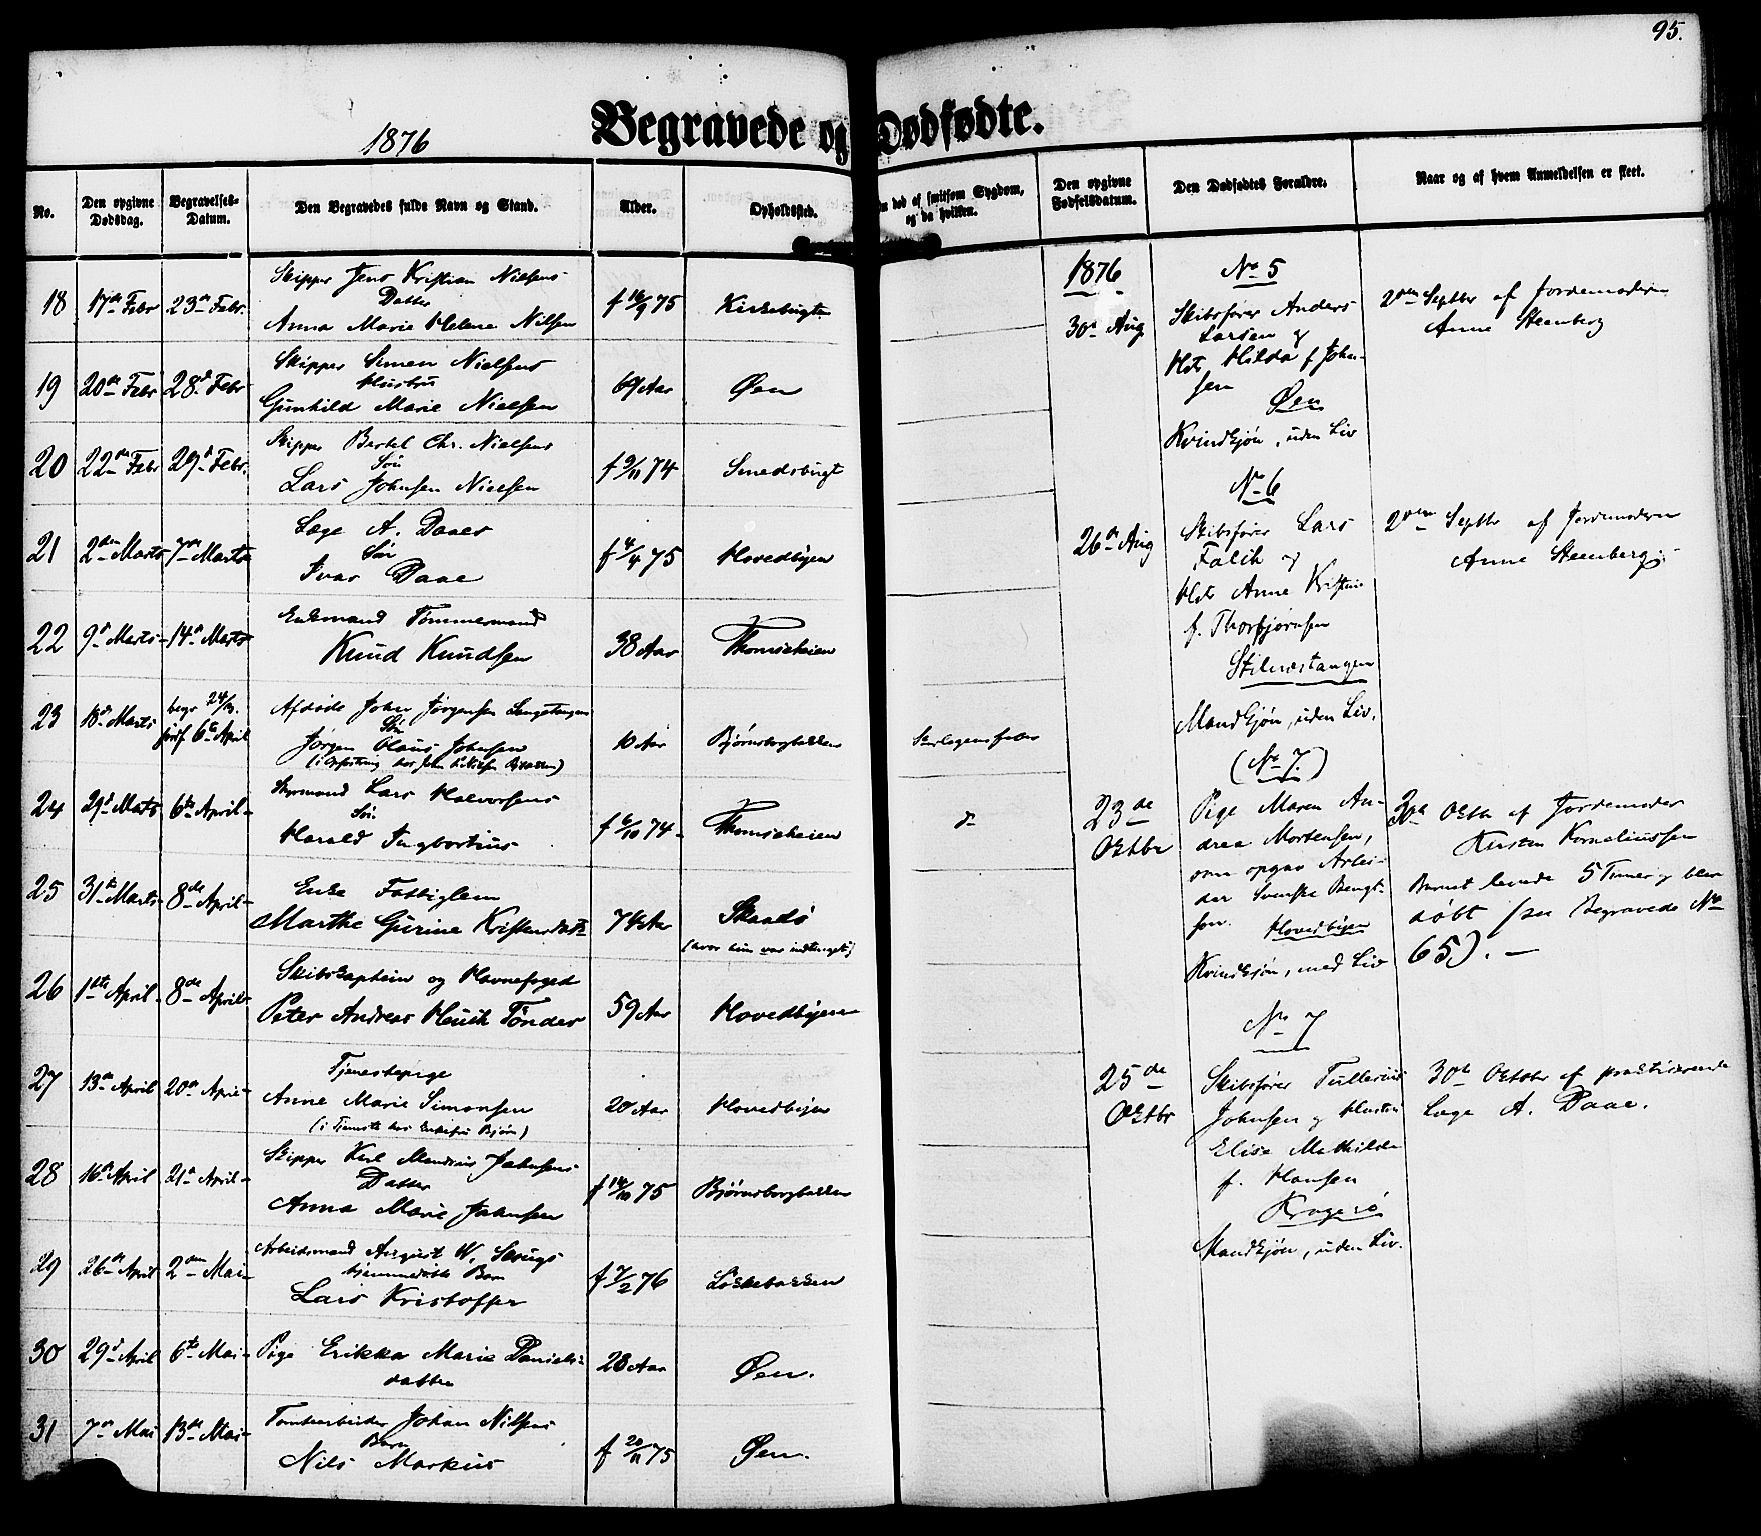 95.
1876
Begravede og Dødfødte.
No.
Den opgivne Dødsdag.
Begravelses-Datum.
Den Begravedes fulde Navn og Stand.
Alder.
Opholdssted.
død af smitsom Sygdom, og da hvilken.
Den opgivne Fødselsdatum.
Den Dødfødtes Forældre.
Naar og af hvem Anmeldelsen er skeet.
18 17de Febr 23de Febr. Skipper Jens Kristian Nielsens
Datter
Anna Marie Helene Nilsen f 16/9 75 Kirkebugten
19 20de Febr 28d Febr Skipper Simen Nielsens
Hustru
Gunhild Marie Nielsen 69 Aar Øen
20 22de Febr 29d Febr. Skipper Bertel Chr. Nielsens
Søn
Lars Johnsen Nielsen f 9/11 74 Smedsbugt
21 2den Marts 7de Marts Læge A. Daaes
Søn
Ivar Daae f 4/4 75 Hovedbyen
22 9d Marts 14d Marts Enkemand Tømmermand
Knud Knudsen 38 Aar Thomseheien
23 18d Marts begr 24/3. jordf 6te April Afdøde John Jørgensen Langetangens
Søn
Jørgen Olaus Johnsen
10 Aar Bjørnsborgbakken Skarlagensfeber
24 29d Marts 6te April Styrmand Lars Halvorsens
Søn
Harald Ingbortius f 6/10 74 Thomseheien do
25 31te Marts 8de April Enke Fattiglem
Marthe Gurine Kristensdatr 74 Aar Skaadø
(hvor hun var indlagt)
26 1ste April 8de April Skibskaptein og Havnefoged
Peter Andreas Heuch Tønder 59 Aar Hovedbyen
27 13de April 20de April Tjenestepige
Anne Marie Simonsen 20 Aar Hovedbyen
(i Tjeneste hos Enkefru Bjørn)
28 16d April 21d April Skipper Karl Mandius Johnsens
Datter
Anna Marie Johnsen f 14/10 75 Bjørnsborgbakken
29 26de April 2den Mai Arbeidsmand August W. Skougs
hjemmedøbte Barn
Lars Kristoffer f 7/2 76 Løkkebakken
30 29d April 6te Mai Pige Erikka Marie Daniels-
datter 28 Aar Øen.
31 7de Mai 13de Mai Tomtearbeider Johan Nilsens
Barn
Nils Markus f 20/11 75 Øen.
1876
No 5
30d Aug Skibsfører Anders
Larsen og
Hst. Hilda f John-
sen
Øen
Kvindkjøn, uden Liv
2den Septbr af Jordemoderen
Anne Steenberg
No 6
26de Aug Skibsfører Lars
Falck og
Hst. Anne Kristine
f. Thorbjørnsen
Stilnæstangen
Mandkjøn, uden Liv.
2den Septbr af Jordemoderen
Anne Steenberg.
(No 7.)
23de Oktbr Pige Maren An-
drea Mortensen,
som opgav Arbei-
der Svenske Bengt-
son. Hovedbyen
Kvindkjøn, med Liv
30d Oktbr af Jordemoder
Kirsten Korneliussen
Barnet levede 5 Timer og blev
døbt (se Begravede No
65). —
No 7
25de Oktbr Skibsfører Tullerius
Johnsen og Hustru
Elise Mathilde
f. Hansen
Kragerø
Mandkjøn, uden Liv.
30d Oktober af praktiserende
Læge A. Daae.